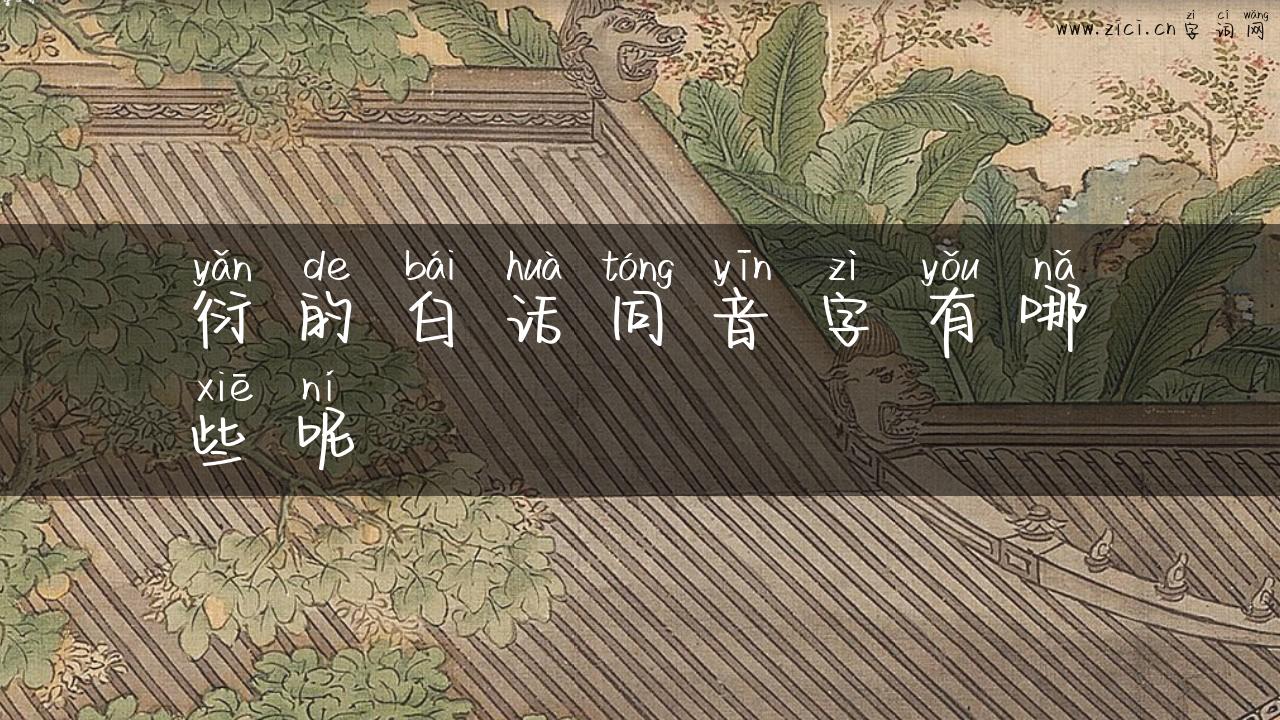 zì cí wǎng
www.zici.cn 字 词 网
yǎn de bái huà tóng yīn zì yǒu nǎ
衍 的 白 话 同 音 字 有 哪
xiē ní
些 呢